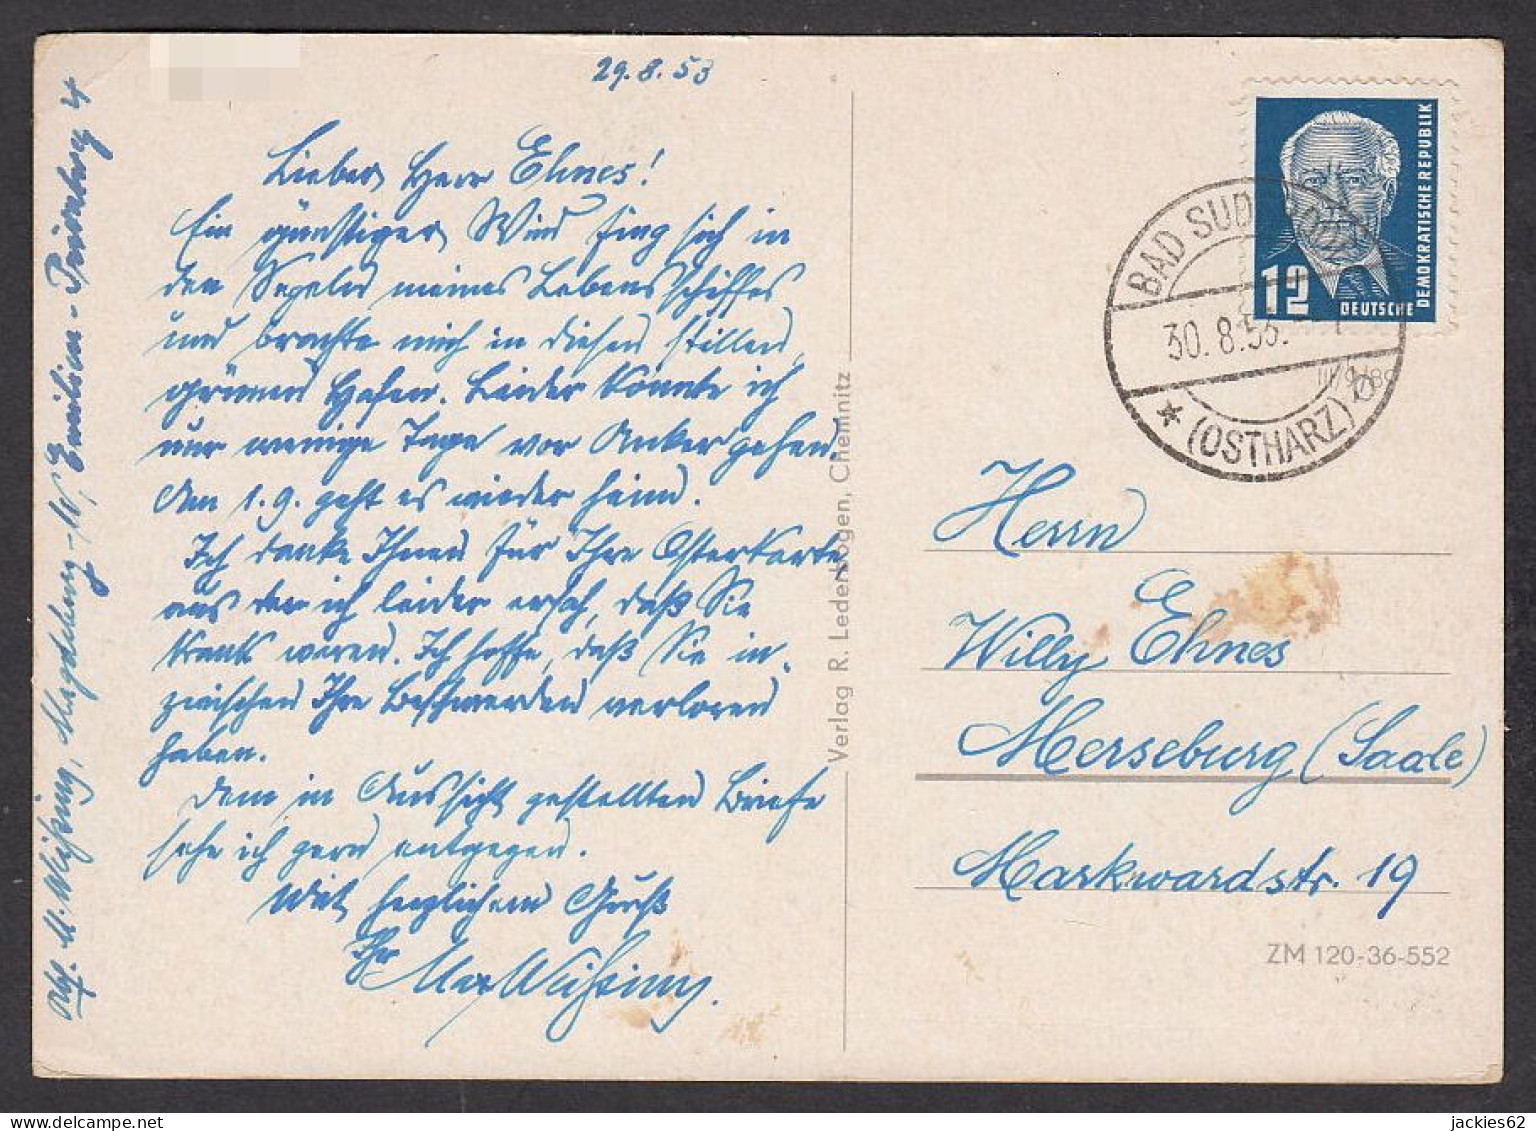 29.8.53
Lieber Herr Ehnes!
Ein günstiger Wind fing sich in
den Segeln meines Lebensschiffes
und brachte mich in diesen stillen,
grünen Hafen. Leider konnte ich
nur wenige Tage vor Anker gehen.
Am 1.9. geht es wieder heim.
Ich danke Ihnen für Ihre Osterkarte
aus der ich leider ersah, daß Sie
krank waren. Ich hoffe, daß Sie in-
zwischen Ihre Beschwerden verloren
haben.
Dem in Aussicht gestellten Briefe
sehe ich gern entgegen.
Mit herzlichem Gruß
Ihr
Max Weißing.
Abs. M. Weißing, Magdeburg-W, Emilien-Privatweg 4
Verlag R. Lederbogen, Chemnitz
DEUTSCHE DEMOKRATISCHE REPUBLIK
12
BAD SUDERODE
30.8.53.
III/9/89
* (OSTHARZ) b
Herrn
Willy Ehnes
Merseburg (Saale)
Markwardstr. 19
ZM 120-36-552
jackies62